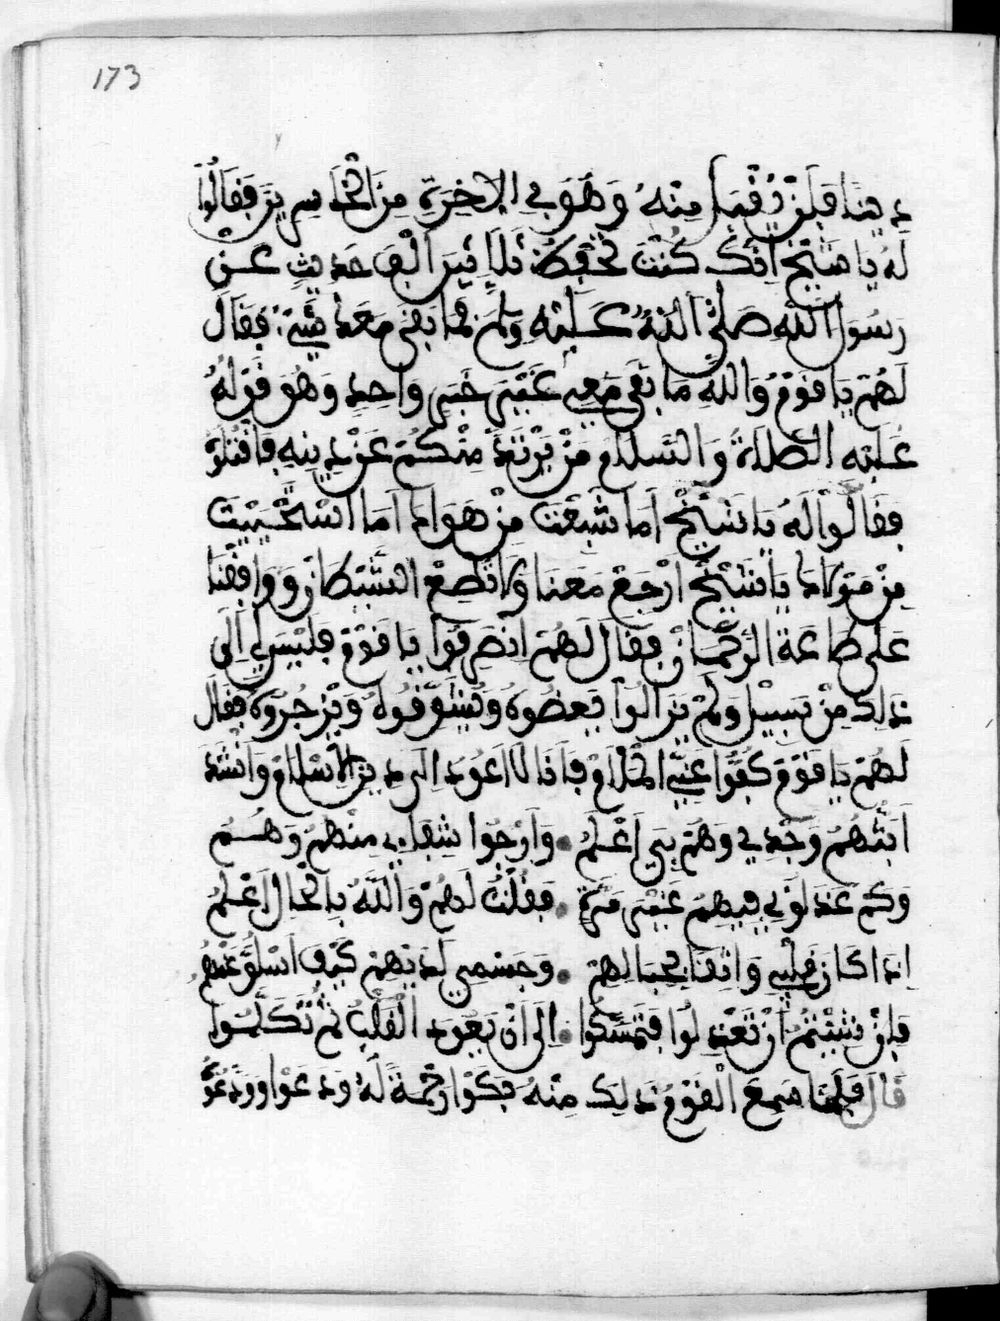 173
دينا فلن يقبل منه وهو في الاخرة من الخاسرين فقالوا
له يا شيخ انك كنت تحفظ ثلاثين الف حديث عن
رسول الله صلى الله عليه وسلم فما بقي معك شيء فقال
لهم يا قوم والله ما بقي معي غير خبر واحد وهو قوله
عليه الصلاة والسلام من يرتد منكم عن دينه فاقتلوه
فقالوا له يا شيخ اما شبعت من هواك اما استحييت
من مولاك يا شيخ ارجع معنا ولا تطع الشيطان ووافقنا
على طاعة الرحمان فقال لهم انصرفوا يا قوم فليس لي الى
ذلك من سبيل ولم يزالوا يعظوه ويشوفوه ويزجروه فقال
لهم يا قوم كفوا عني الملام فانا لا اعود الى دين الاسلام وانشد
ابثهم وجدي وهم بي اعلم • وارجوا شفاءي منهم وهم هم
وكم عذلوني فيهم غير مرة • فقلت لهم والله بالحال اعلم
اذا كان قلبي واثقا بحبالهم • وجسمي لديهم كيف اسلو عنهم
فان شيتم ان تعذلوا فتمسكوا • الى ان يعود القلب ثم تكلموا
قال فلما سمع القوم ذلك منه بكوا رحمة له ودعوا وودعو